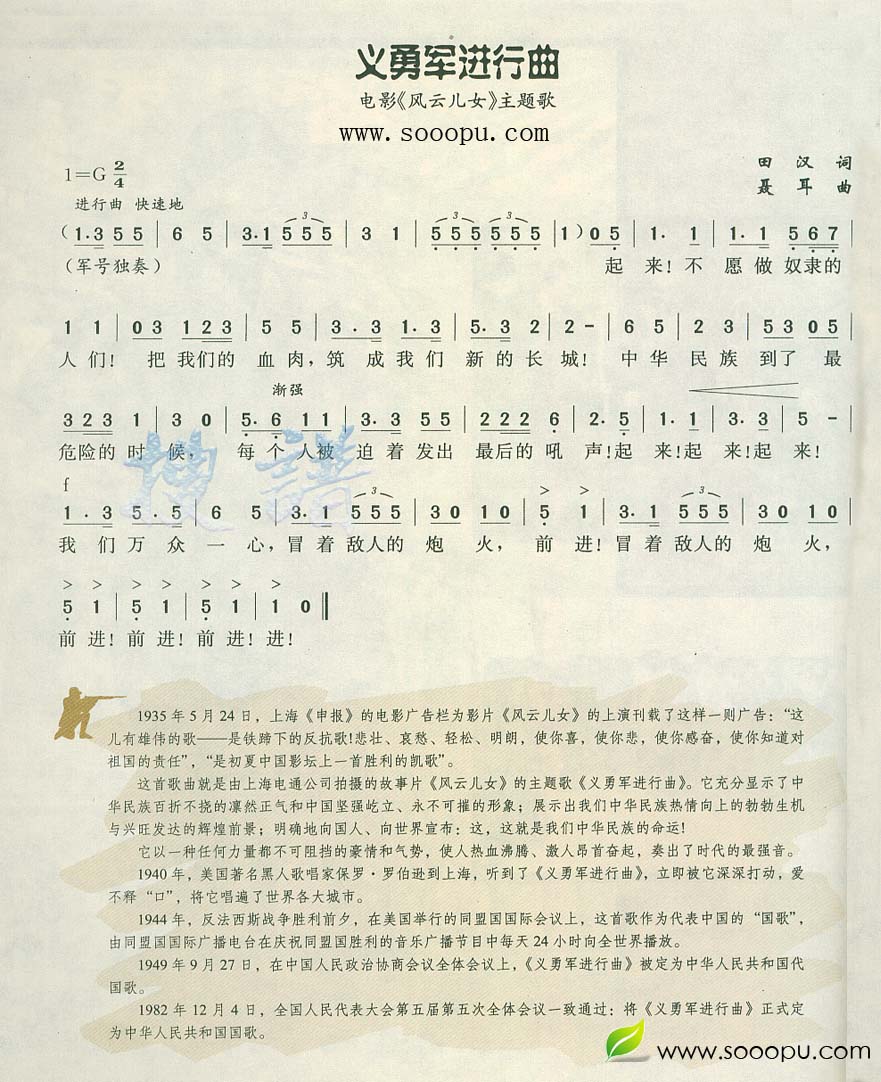 义勇军进行曲
电影《风云儿女》主题歌
www.sooopu.com
1=G 2/4
田 汉 词
聂 耳 曲
进行曲 快速地
(1·3 5 5 | 6 5 | 3·1 5 5 5 | 3 1 | 5 5 5 5 5 5 | 1) 0 5 | 1· 1 | 1·1 5 6 7 |
(军号独奏) 起 来! 不 愿 做 奴 隶 的
1 1 | 0 3 1 2 3 | 5 5 | 3·3 1·3 | 5·3 2 | 2 - | 6 5 | 2 3 | 5 3 0 5 |
人 们! 把 我 们 的 血 肉, 筑 成 我 们 新 的 长 城! 中 华 民 族 到 了 最
渐强
3 2 3 1 | 3 0 | 5·6 1 1 | 3·3 5 5 | 2 2 2 6 | 2· 5 | 1· 1 | 3· 3 | 5 - |
危 险 的 时 候, 每 个 人 被 迫 着 发 出 最 后 的 吼 声! 起 来! 起 来! 起 来!
f
1·3 5·5 | 6 5 | 3·1 5 5 5 | 3 0 1 0 | 5 1 | 3·1 5 5 5 | 3 0 1 0 |
我 们 万 众 一 心, 冒 着 敌 人 的 炮 火, 前 进! 冒 着 敌 人 的 炮 火,
5 1 | 5 1 | 5 1 | 1 0 ‖
前 进! 前 进! 前 进! 进!
搜 谱
1935 年 5 月 24 日，上海《申报》的电影广告栏为影片《风云儿女》的上演刊载了这样一则广告：“这
儿有雄伟的歌——是铁蹄下的反抗歌!悲壮、哀愁、轻松、明朗，使你喜，使你悲，使你感奋，使你知道对
祖国的责任”，“是初夏中国影坛上一首胜利的凯歌”。
这首歌曲就是由上海电通公司拍摄的故事片《风云儿女》的主题歌《义勇军进行曲》。它充分显示了中
华民族百折不挠的凛然正气和中国坚强屹立、永不可摧的形象；展示出我们中华民族热情向上的勃勃生机
与兴旺发达的辉煌前景；明确地向国人、向世界宣布：这，这就是我们中华民族的命运!
它以一种任何力量都不可阻挡的豪情和气势，使人热血沸腾、激人昂首奋起，奏出了时代的最强音。
1940 年，美国著名黑人歌唱家保罗·罗伯逊到上海，听到了《义勇军进行曲》，立即被它深深打动，爱
不释“口”，将它唱遍了世界各大城市。
1944 年，反法西斯战争胜利前夕，在美国举行的同盟国国际会议上，这首歌作为代表中国的“国歌”，
由同盟国国际广播电台在庆祝同盟国胜利的音乐广播节目中每天 24 小时向全世界播放。
1949 年 9 月 27 日，在中国人民政治协商会议全体会议上，《义勇军进行曲》被定为中华人民共和国代
国歌。
1982 年 12 月 4 日，全国人民代表大会第五届第五次全体会议一致通过：将《义勇军进行曲》正式定
为中华人民共和国国歌。
www.sooopu.com